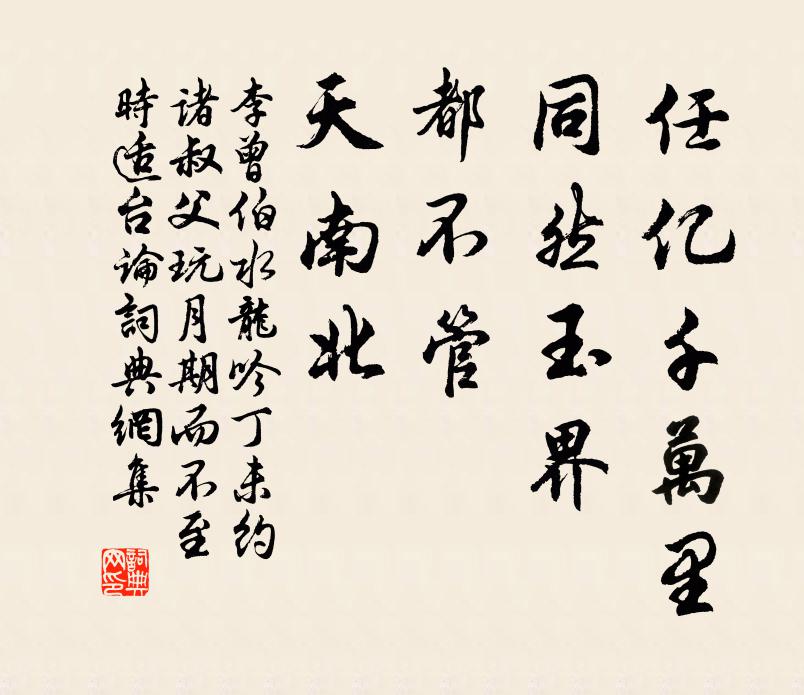 任亿千萬里
同然玉界
都不管
天南北
李曾伯水龍吟丁未約
諸叔父玩月期而不至
時适台論詞典網集
詞典
网印